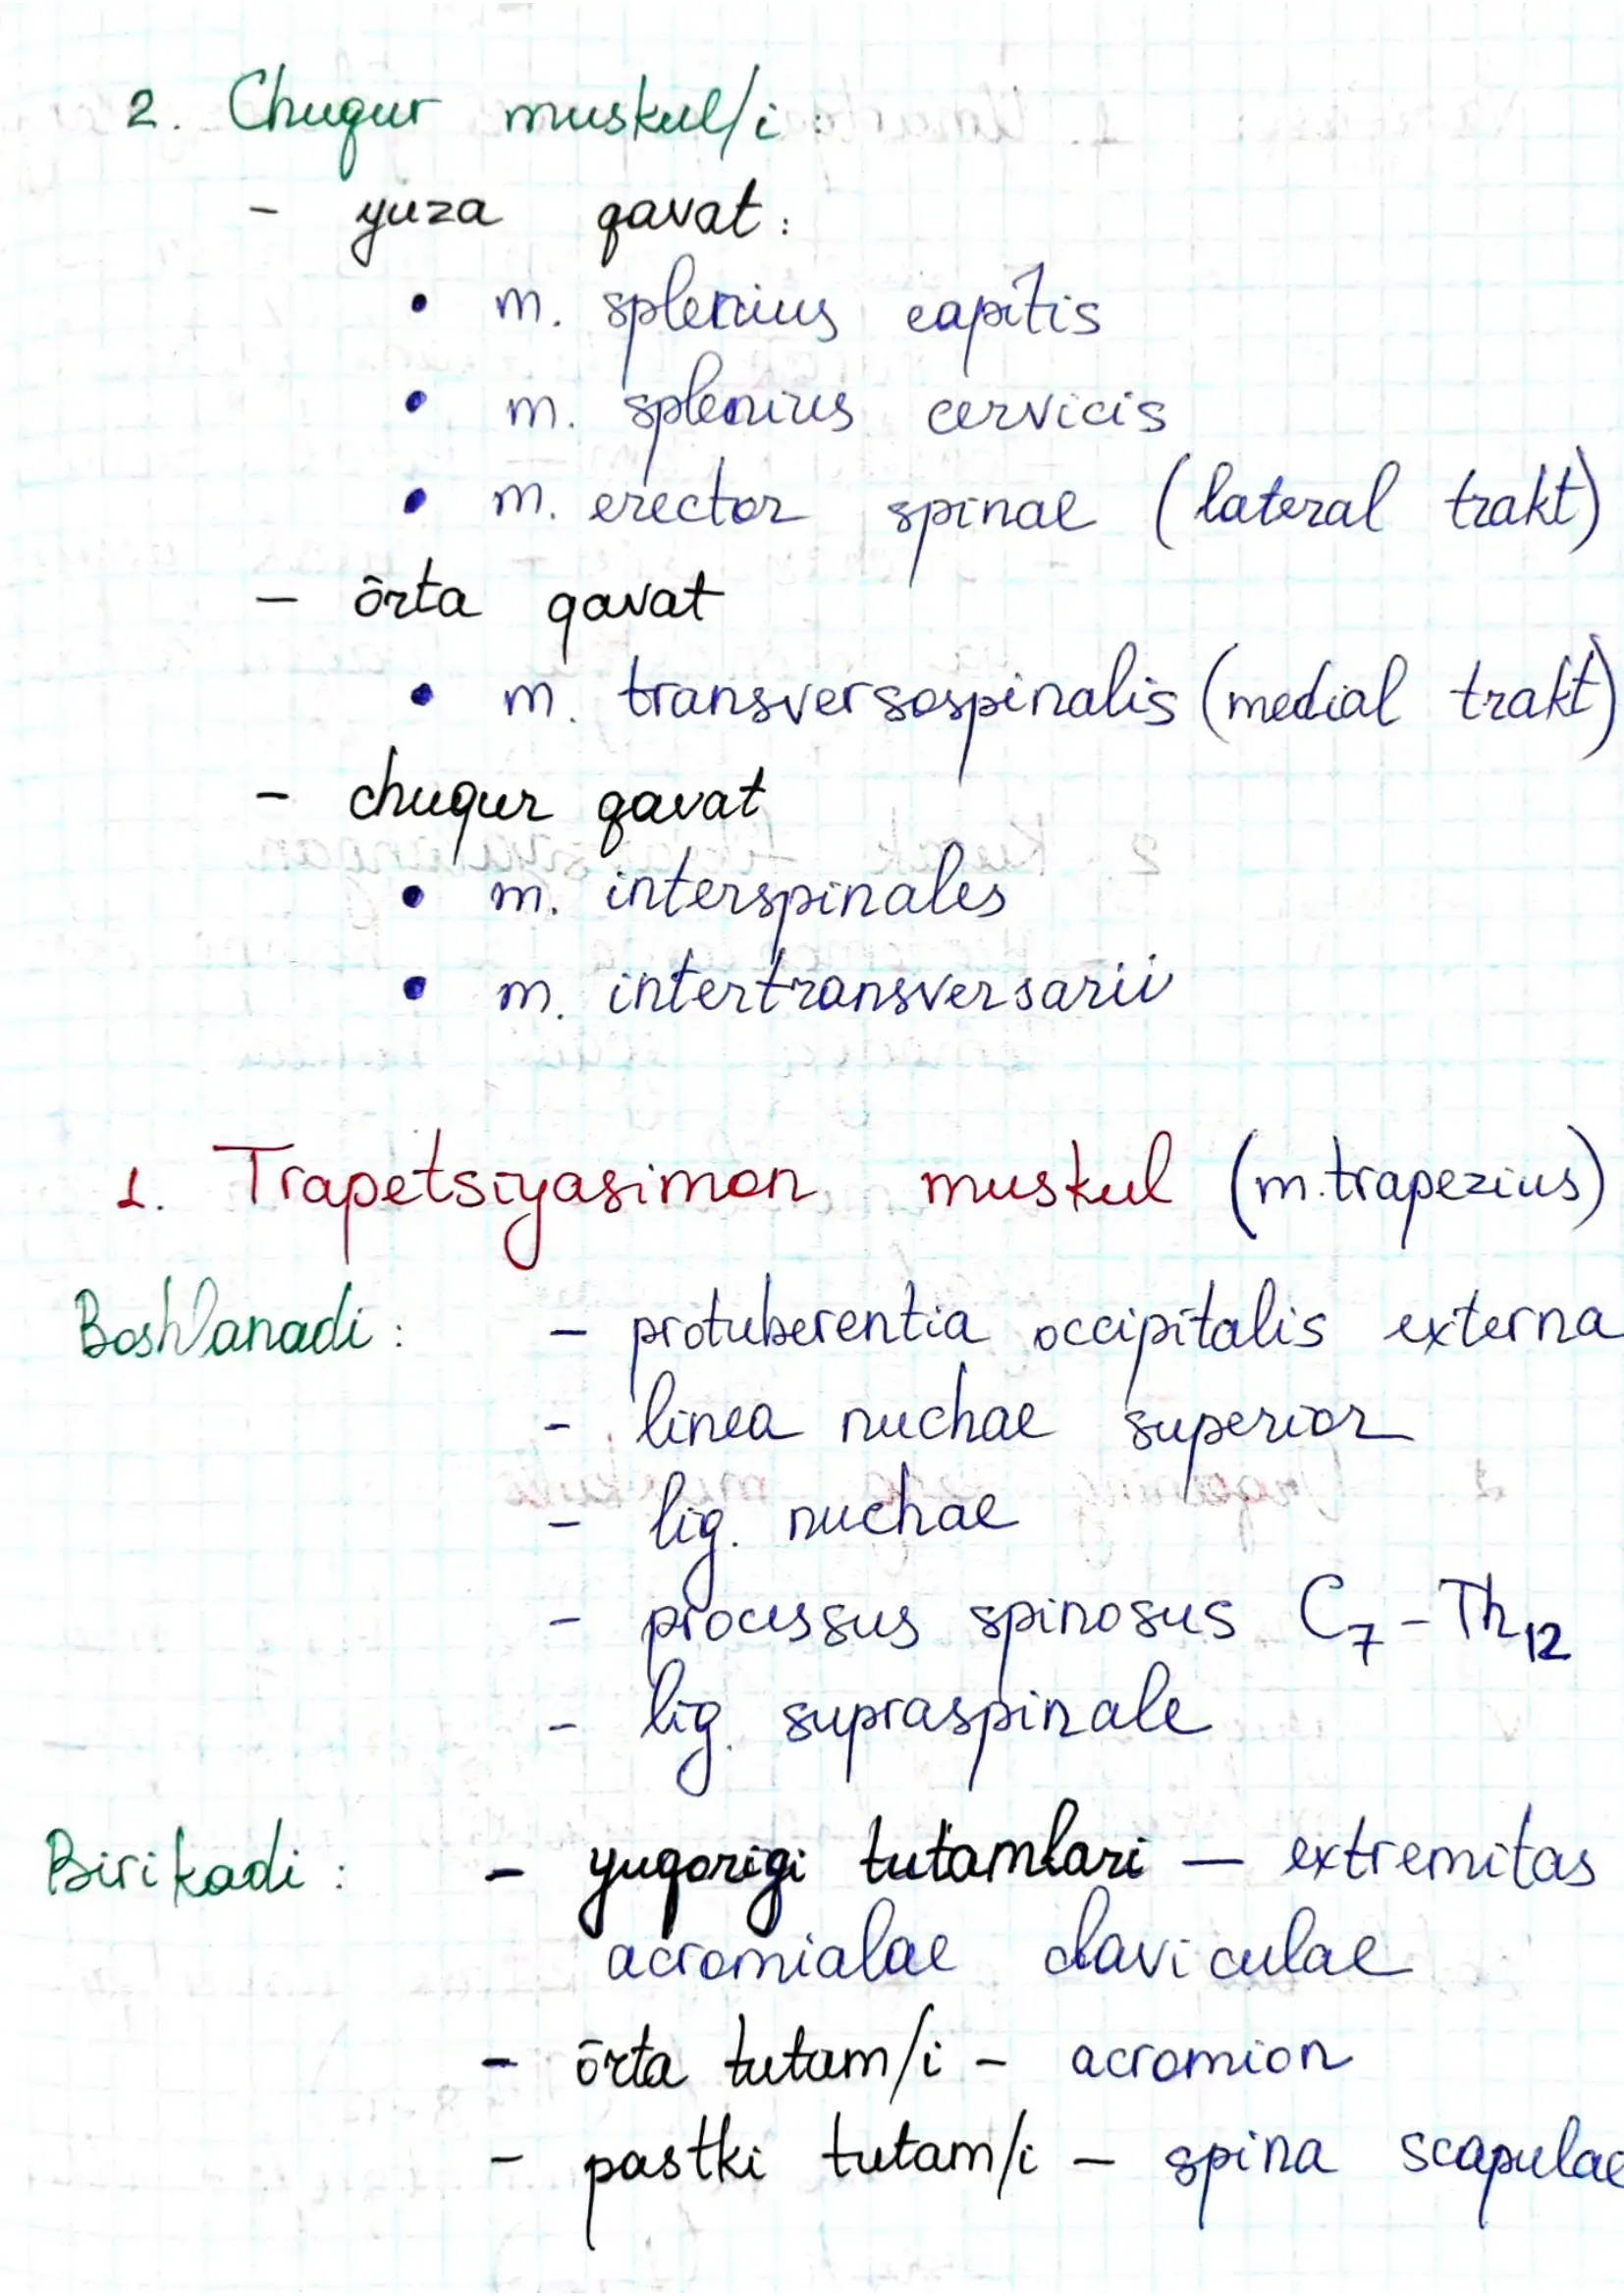 2. Chuqur muskul/i:
- yuza qavat:
• m. splenius capitis
• m. splenius cervicis
• m. erector spinae (lateral trakt)
- ōrta qavat
• m. transversospinalis (medial trakt)
- chuqur qavat
• m. interspinales
• m. intertransversarii
1. Trapetsiyasimon muskul (m. trapezius)
Boshlanadi: - protuberentia occipitalis externa
- linea nuchae superior
- lig. nuchae
- processus spinosus C₇ - Th₁₂
- lig. supraspinale
Birikadi: - yuqorigi tutamlari — extremitas
acromialae claviculae
- ōrta tutam/i - acromion
- pastki tutam/i - spina scapulae